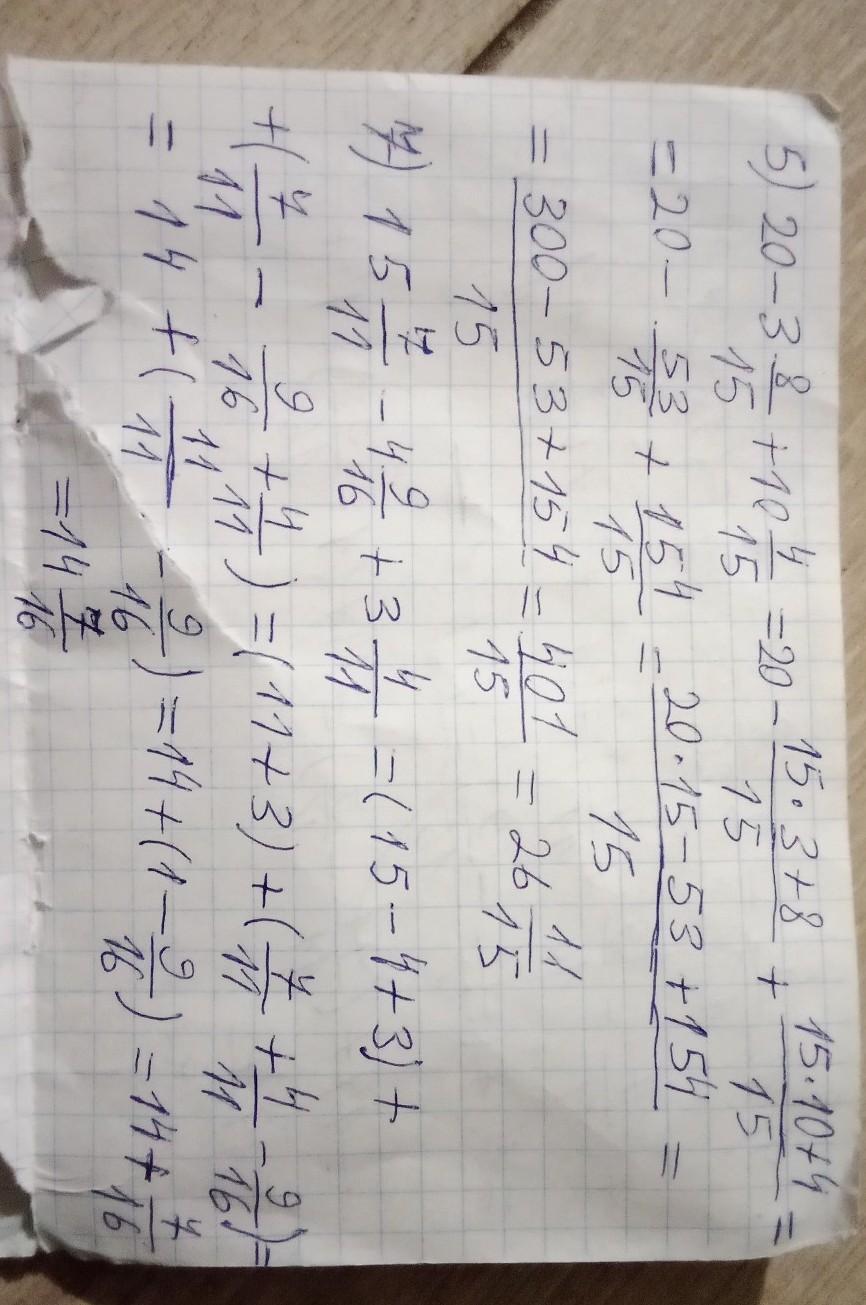 5) 20 - 3 8/15 + 10 4/15 = 20 - (15·3+8)/15 + (15·10+4)/15 =
= 20 - 53/15 + 154/15 = (20·15-53+154)/15 =
= (300-53+154)/15 = 401/15 = 26 11/15
7) 15 7/11 - 4 9/16 + 3 4/11 = (15-4+3) +
+ (7/11 - 9/16 + 4/11) = (11+3) + (7/11 + 4/11 - 9/16) =
= 14 + (11/11 - 9/16) = 14 + (1 - 9/16) = 14 + 7/16
= 14 7/16